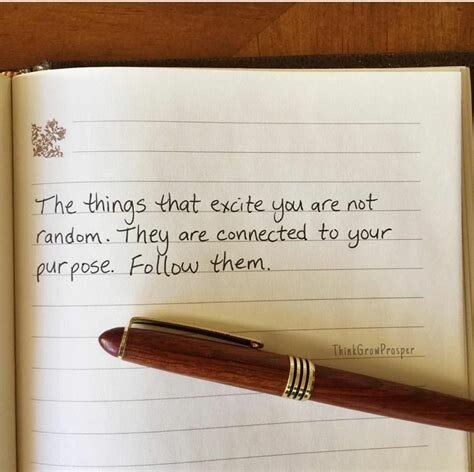 The things that excite you are not
random. They are connected to your
purpose. Follow them.
ThinkGrowProsper